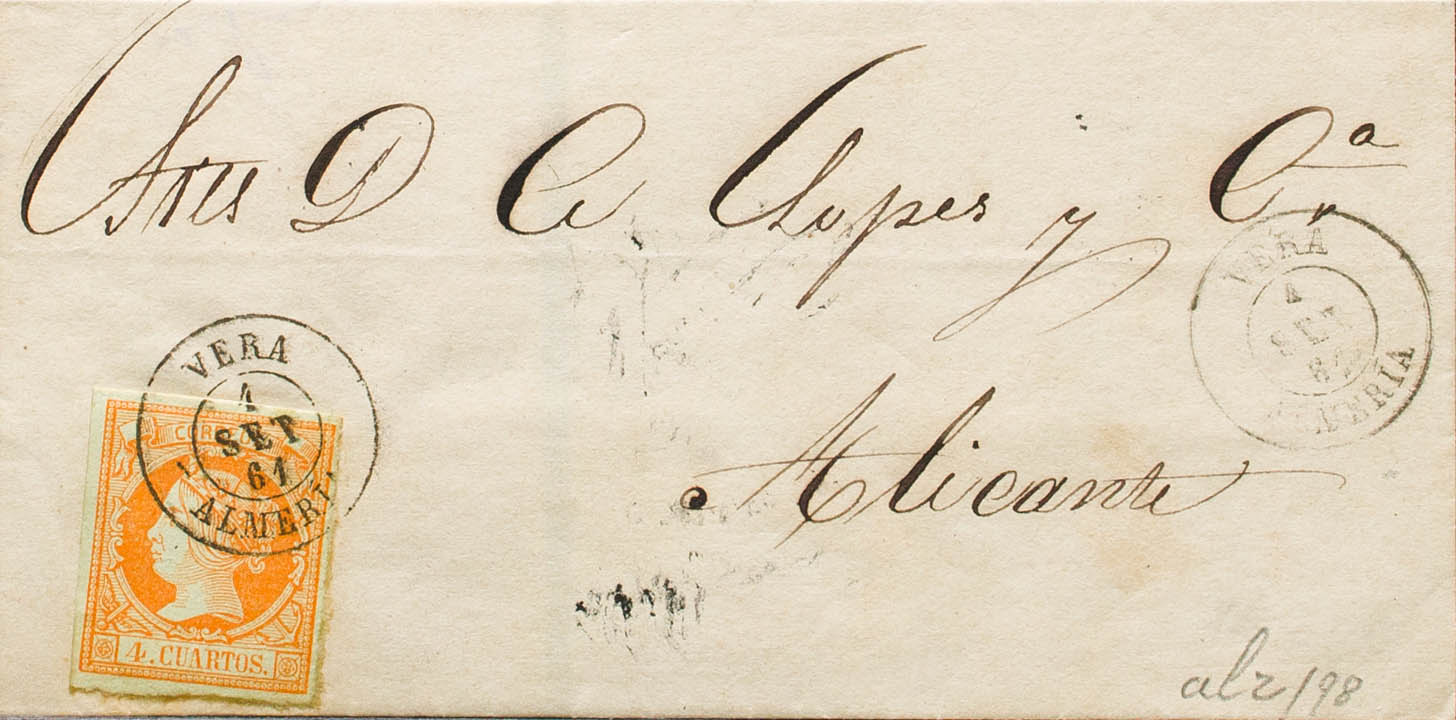 Sres D C. Lopes y Cª
VERA
4
SET
61
ALMERIA
Alicante
VERA
1
SET
61
ALMERIA
CORREOS
4. CUARTOS.
alz/98